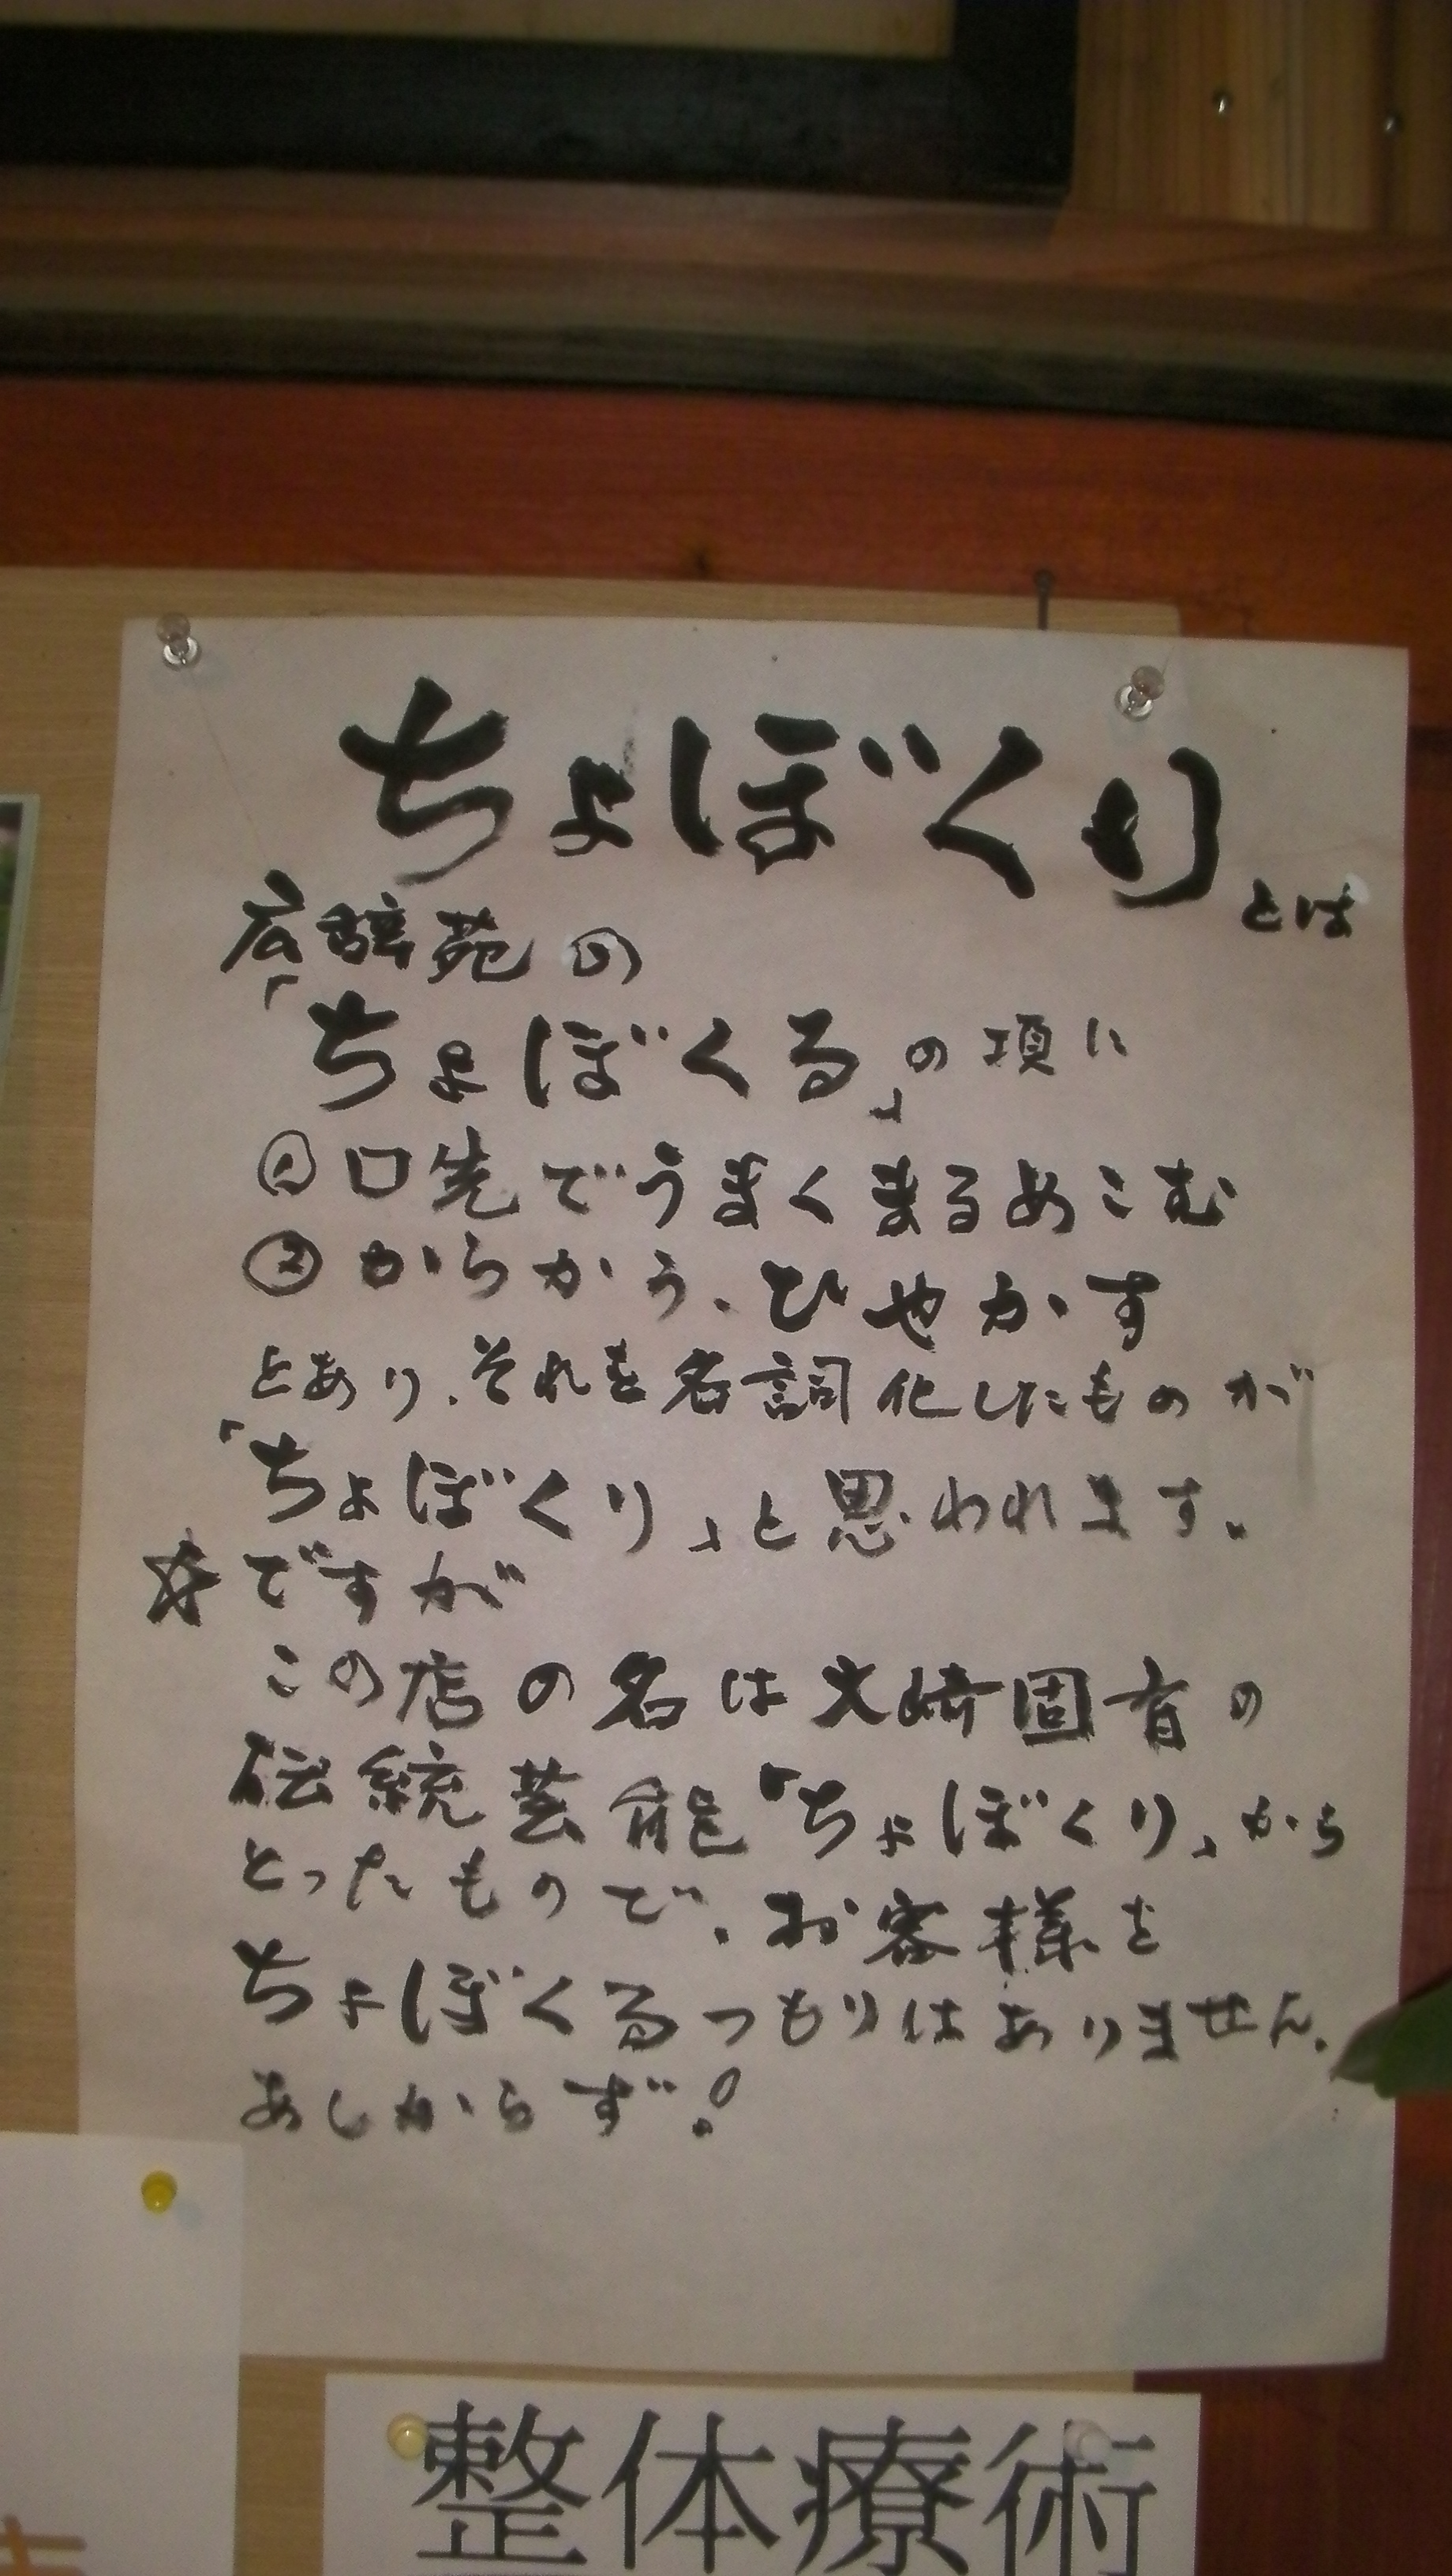 ちょぼくりとは
広辞苑の
「ちょぼくる」の項に
①口先でうまくまるめこむ
②からかう、ひやかす
とあり、それを名詞化したものが
「ちょぼくり」と思われます。
☆ですが
この店の名は大崎固有の
伝統芸能「ちょぼくり」から
とったもので、お客様を
ちょぼくるつもりはありません。
あしからず!
整体療術